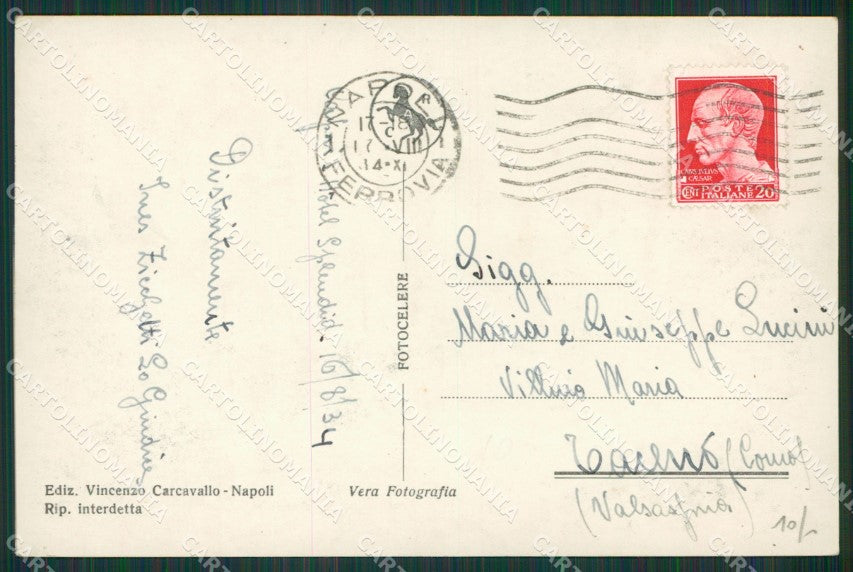 NAPOLI
17-18
17·VIII
34·XI
FERROVIA
CAIUS JULIUS
CAESAR
CENT POSTE 20
ITALIANE
Hotel Splendid. 16/8/34
Distintamente
Ines
Sigg.
Maria e Giuseppe Lucini
Maria
(Como)
(Valsassina)
10/-
FOTOCELERE
Ediz. Vincenzo Carcavallo - Napoli
Rip. interdetta
Vera Fotografia
CARTOLINOMANIA